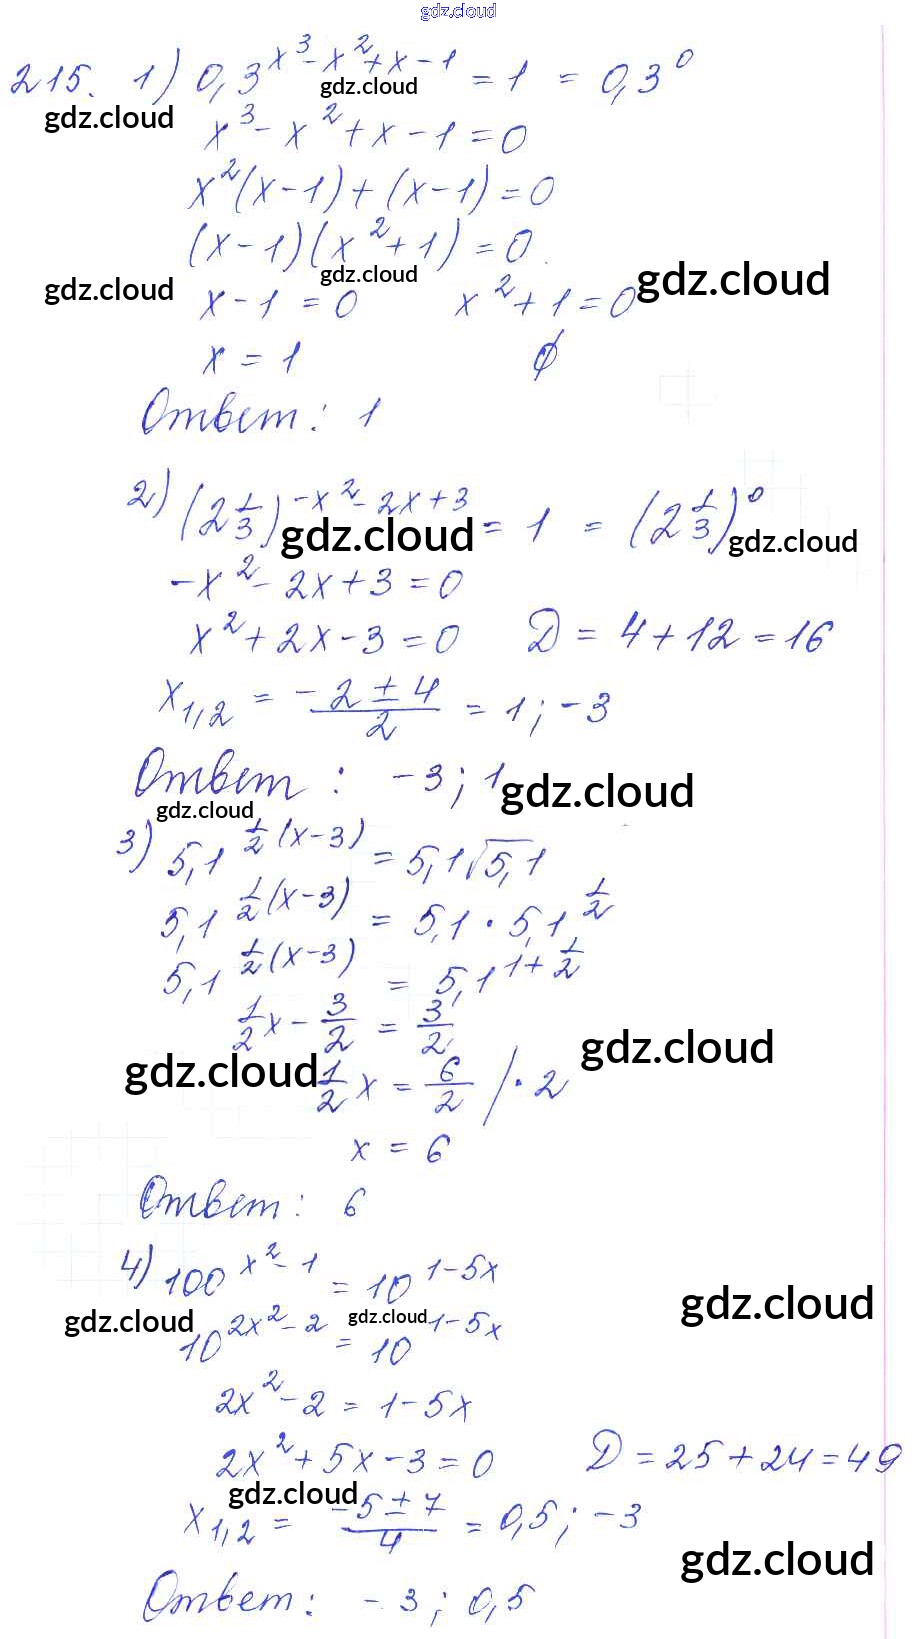 gdz.cloud
215. 1) 0,3^(x³-x²+x-1) = 1 = 0,3⁰
gdz.cloud gdz.cloud
x³ - x² + x - 1 = 0
x²(x-1) + (x-1) = 0
(x-1)(x²+1) = 0
gdz.cloud gdz.cloud gdz.cloud
x - 1 = 0 x² + 1 = 0
x = 1 ∅
Ответ: 1
2) (2 1/3)^(-x²-2x+3) = 1 = (2 1/3)⁰
gdz.cloud gdz.cloud
-x² - 2x + 3 = 0
x² + 2x - 3 = 0 D = 4 + 12 = 16
x₁,₂ = (-2 ± 4)/2 = 1; -3
Ответ: -3; 1
gdz.cloud gdz.cloud
3) 5,1^(1/2(x-3)) = 5,1√5,1
5,1^(1/2(x-3)) = 5,1 · 5,1^(1/2)
5,1^(1/2(x-3)) = 5,1^(1+1/2)
1/2 x - 3/2 = 3/2
gdz.cloud gdz.cloud
1/2 x = 6/2 /· 2
x = 6
Ответ: 6
4) 100^(x²-1) = 10^(1-5x)
gdz.cloud gdz.cloud gdz.cloud
10^(2x²-2) = 10^(1-5x)
2x² - 2 = 1 - 5x
2x² + 5x - 3 = 0 D = 25 + 24 = 49
gdz.cloud
x₁,₂ = (-5 ± 7)/4 = 0,5; -3
gdz.cloud
Ответ: -3; 0,5